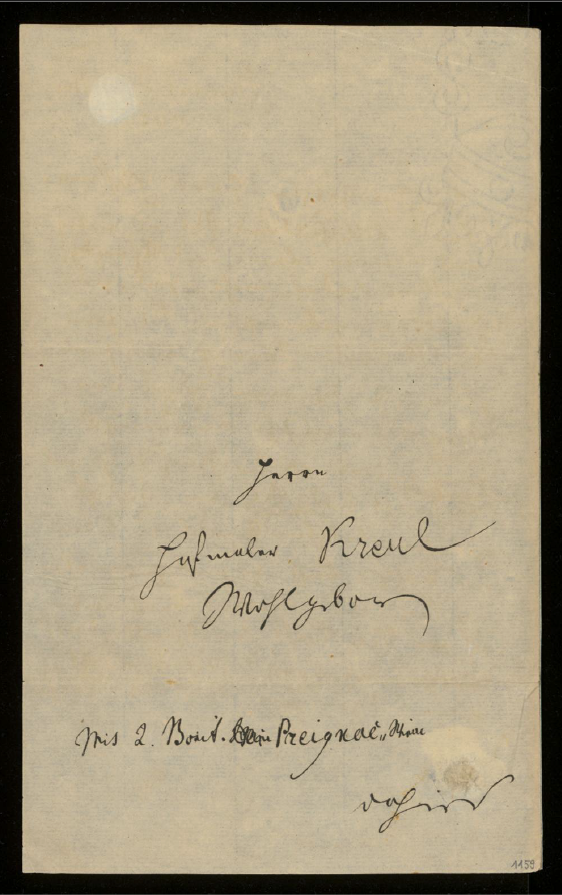 Herrn
Hofmaler Kreul
Wohlgebor
Mit 2. Bout. Preignac
dahier
1159